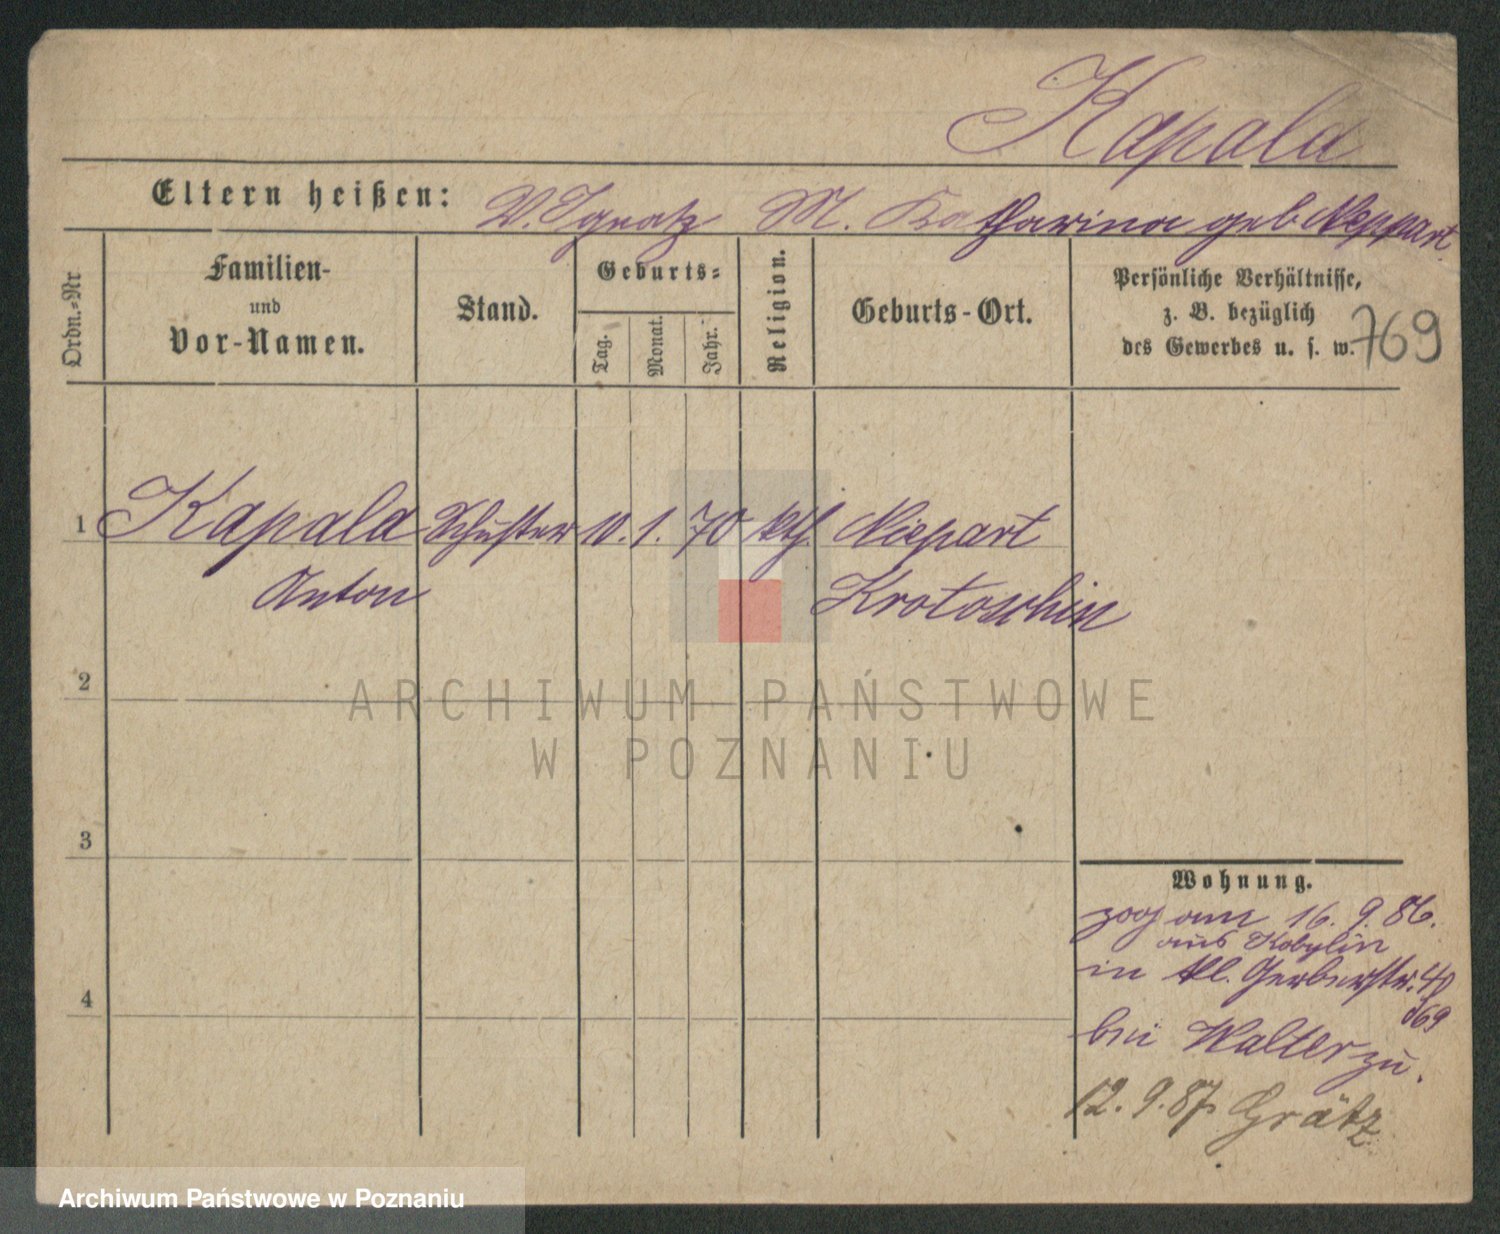 Kapala
Eltern heißen: V. Ignatz M. Katharina geb Neppart
Ordn.-Nr
Familien-
und
Vor-Namen.
Stand.
Geburts-
Tag.
Monat.
Jahr.
Religion.
Geburts-Ort.
Persönliche Verhältnisse,
z. B. bezüglich
des Gewerbes u. s. w.
769
1 Kapala Schuster 10. 1. 70 kth. Niepart
Anton Krotoschin
2
3
4
ARCHIWUM PAŃSTWOWE
W POZNANIU
Wohnung.
zog am 16. 9. 86.
aus Kobylin
in kl. Gerberstr.
69
bei Walter zu.
12. 9. 87 Grätz
Archiwum Państwowe w Poznaniu